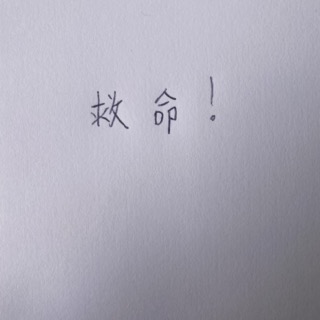 救命!